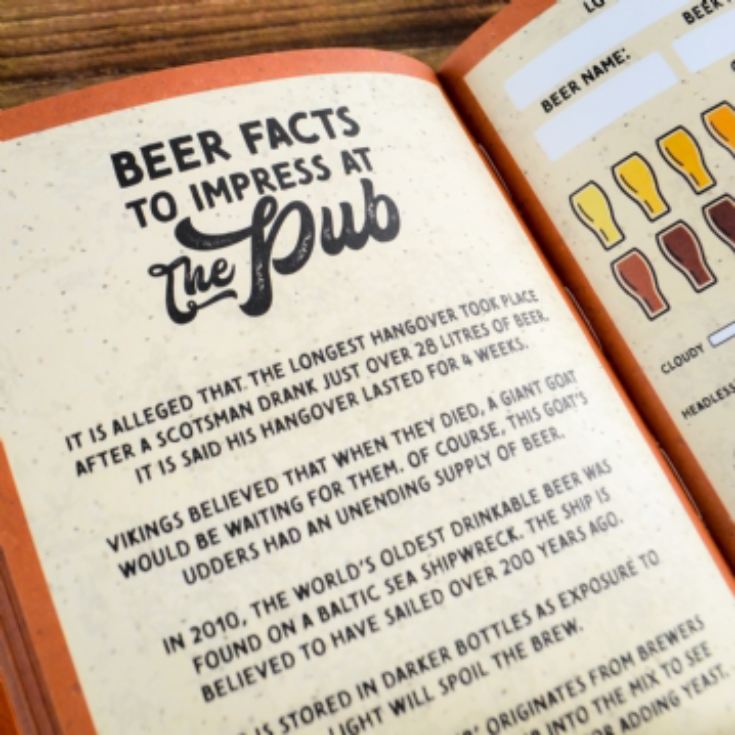 BEER FACTS
TO IMPRESS AT
The Pub
IT IS ALLEGED THAT THE LONGEST HANGOVER TOOK PLACE
AFTER A SCOTSMAN DRANK JUST OVER 28 LITRES OF BEER.
IT IS SAID HIS HANGOVER LASTED FOR 4 WEEKS.
VIKINGS BELIEVED THAT WHEN THEY DIED, A GIANT GOAT
WOULD BE WAITING FOR THEM. OF COURSE, THIS GOAT'S
UDDERS HAD AN UNENDING SUPPLY OF BEER.
IN 2010, THE WORLD'S OLDEST DRINKABLE BEER WAS
FOUND ON A BALTIC SEA SHIPWRECK. THE SHIP IS
BELIEVED TO HAVE SAILED OVER 200 YEARS AGO.
IS STORED IN DARKER BOTTLES AS EXPOSURE TO
LIGHT WILL SPOIL THE BREW.
ORIGINATES FROM BREWERS
INTO THE MIX TO SEE
FOR ADDING YEAST.
BEER NAME:
CLOUDY
HEADLESS